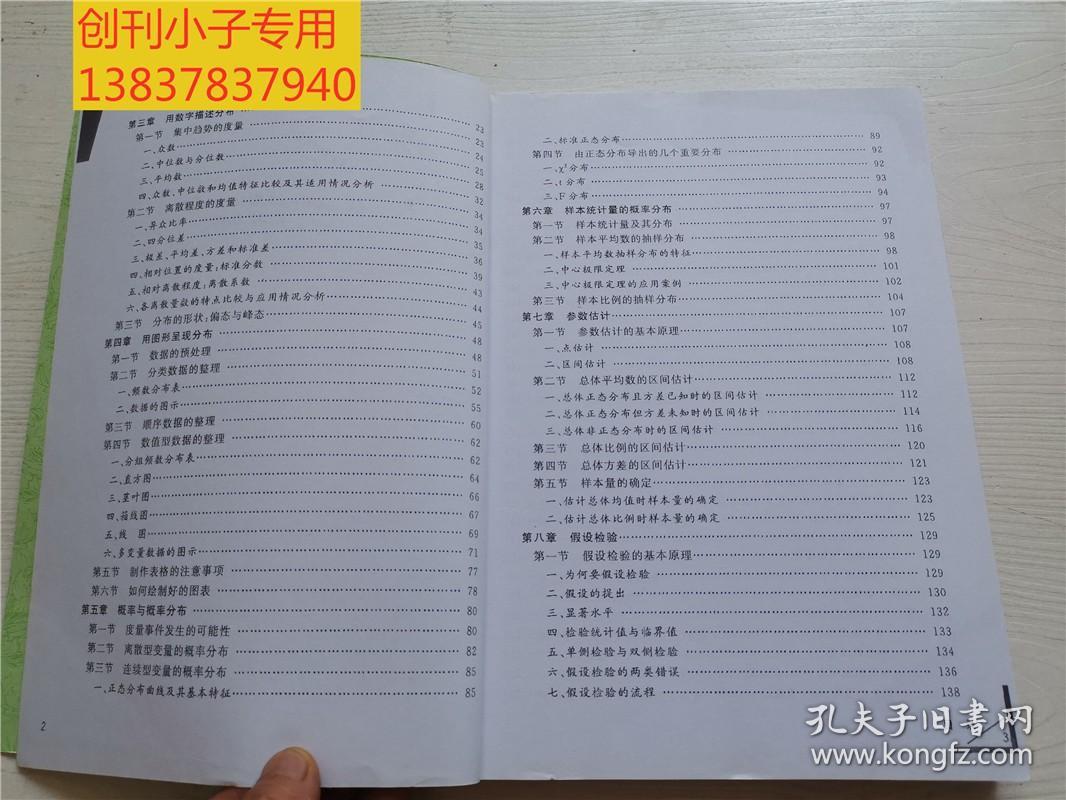 创刊小子专用
13837837940
第三章 用数字描述分布 23
第一节 集中趋势的度量 23
一、众数 24
二、中位数与分位数 24
三、平均数 25
四、众数、中位数和均值特征比较及其适用情况分析 28
第二节 离散程度的度量 32
一、异众比率 34
二、四分位差 34
三、极差、平均差、方差和标准差 35
四、相对位置的度量:标准分数 36
五、相对离散程度:离散系数 39
六、各离散量数的特点比较与应用情况分析 43
第三节 分布的形状:偏态与峰态 44
第四章 用图形呈现分布 48
第一节 数据的预处理 48
第二节 分类数据的整理 51
一、频数分布表 52
二、数据的图示 55
第三节 顺序数据的整理 60
第四节 数值型数据的整理 62
一、分组频数分布表 62
二、直方图 64
三、茎叶图 66
四、箱线图 67
五、线 图 69
六、多变量数据的图示 71
第五节 制作表格的注意事项 77
第六节 如何绘制好的图表 78
第五章 概率与概率分布 80
第一节 度量事件发生的可能性 80
第二节 离散型变量的概率分布 82
第三节 连续型变量的概率分布 85
一、正态分布曲线及其基本特征 85
2
二、标准正态分布 89
第四节 由正态分布导出的几个重要分布 92
一、χ²分布 92
二、t分布 93
三、F分布 94
第六章 样本统计量的概率分布 97
第一节 样本统计量及其分布 97
第二节 样本平均数的抽样分布 98
一、样本平均数抽样分布的特征 98
二、中心极限定理 101
三、中心极限定理的应用案例 102
第三节 样本比例的抽样分布 104
第七章 参数估计 107
第一节 参数估计的基本原理 107
一、点估计 108
二、区间估计 108
第二节 总体平均数的区间估计 112
一、总体正态分布且方差已知时的区间估计 112
二、总体正态分布但方差未知时的区间估计 114
三、总体非正态分布时的区间估计 116
第三节 总体比例的区间估计 120
第四节 总体方差的区间估计 121
第五节 样本量的确定 123
一、估计总体均值时样本量的确定 123
二、估计总体比例时样本量的确定 125
第八章 假设检验 129
第一节 假设检验的基本原理 129
一、为何要假设检验 129
二、假设的提出 130
三、显著水平 132
四、检验统计值与临界值 133
五、单侧检验与双侧检验 134
六、假设检验的两类错误 136
七、假设检验的流程 138
3
孔夫子旧书网
www.kongfz.com